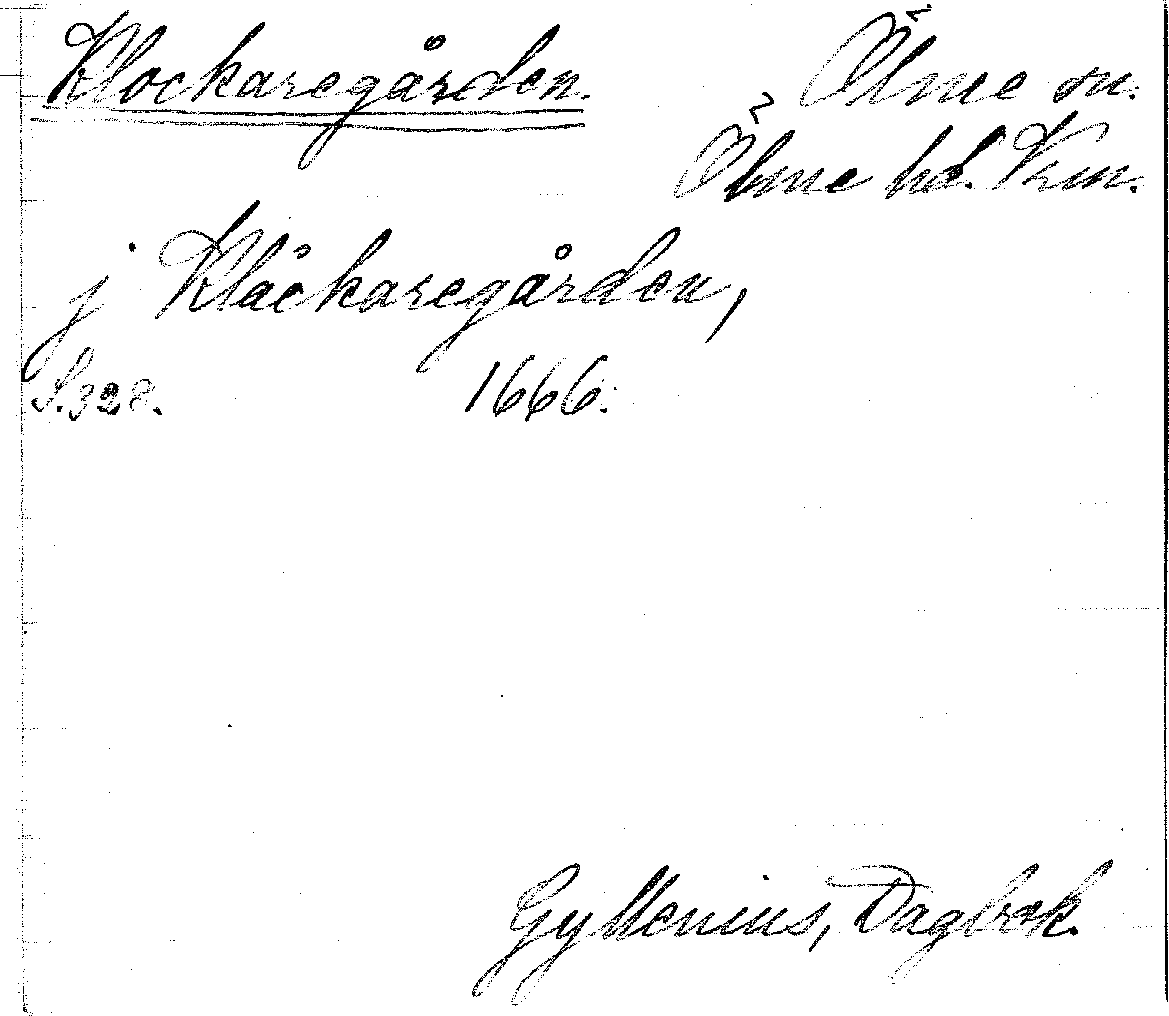 Klockaregården. Ölme sn.
Ölme hd. Krm.
j Klåckaregården,
S.328. 1666.
Gyllenius, Dagbok.